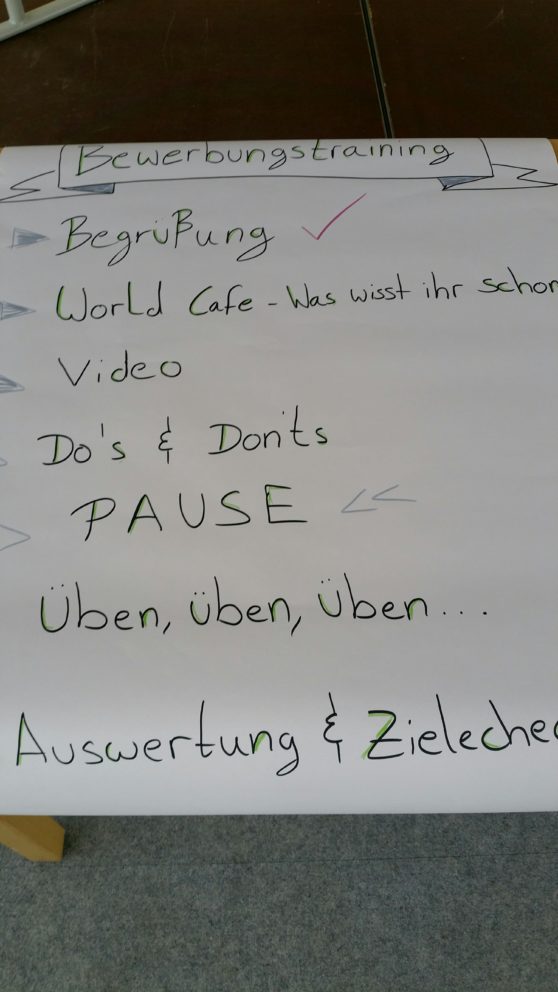 Bewerbungstraining
Begrüßung
World Cafe - Was wisst ihr schon
Video
Do's & Don'ts
PAUSE
Üben, üben, üben...
Auswertung & Zielechec